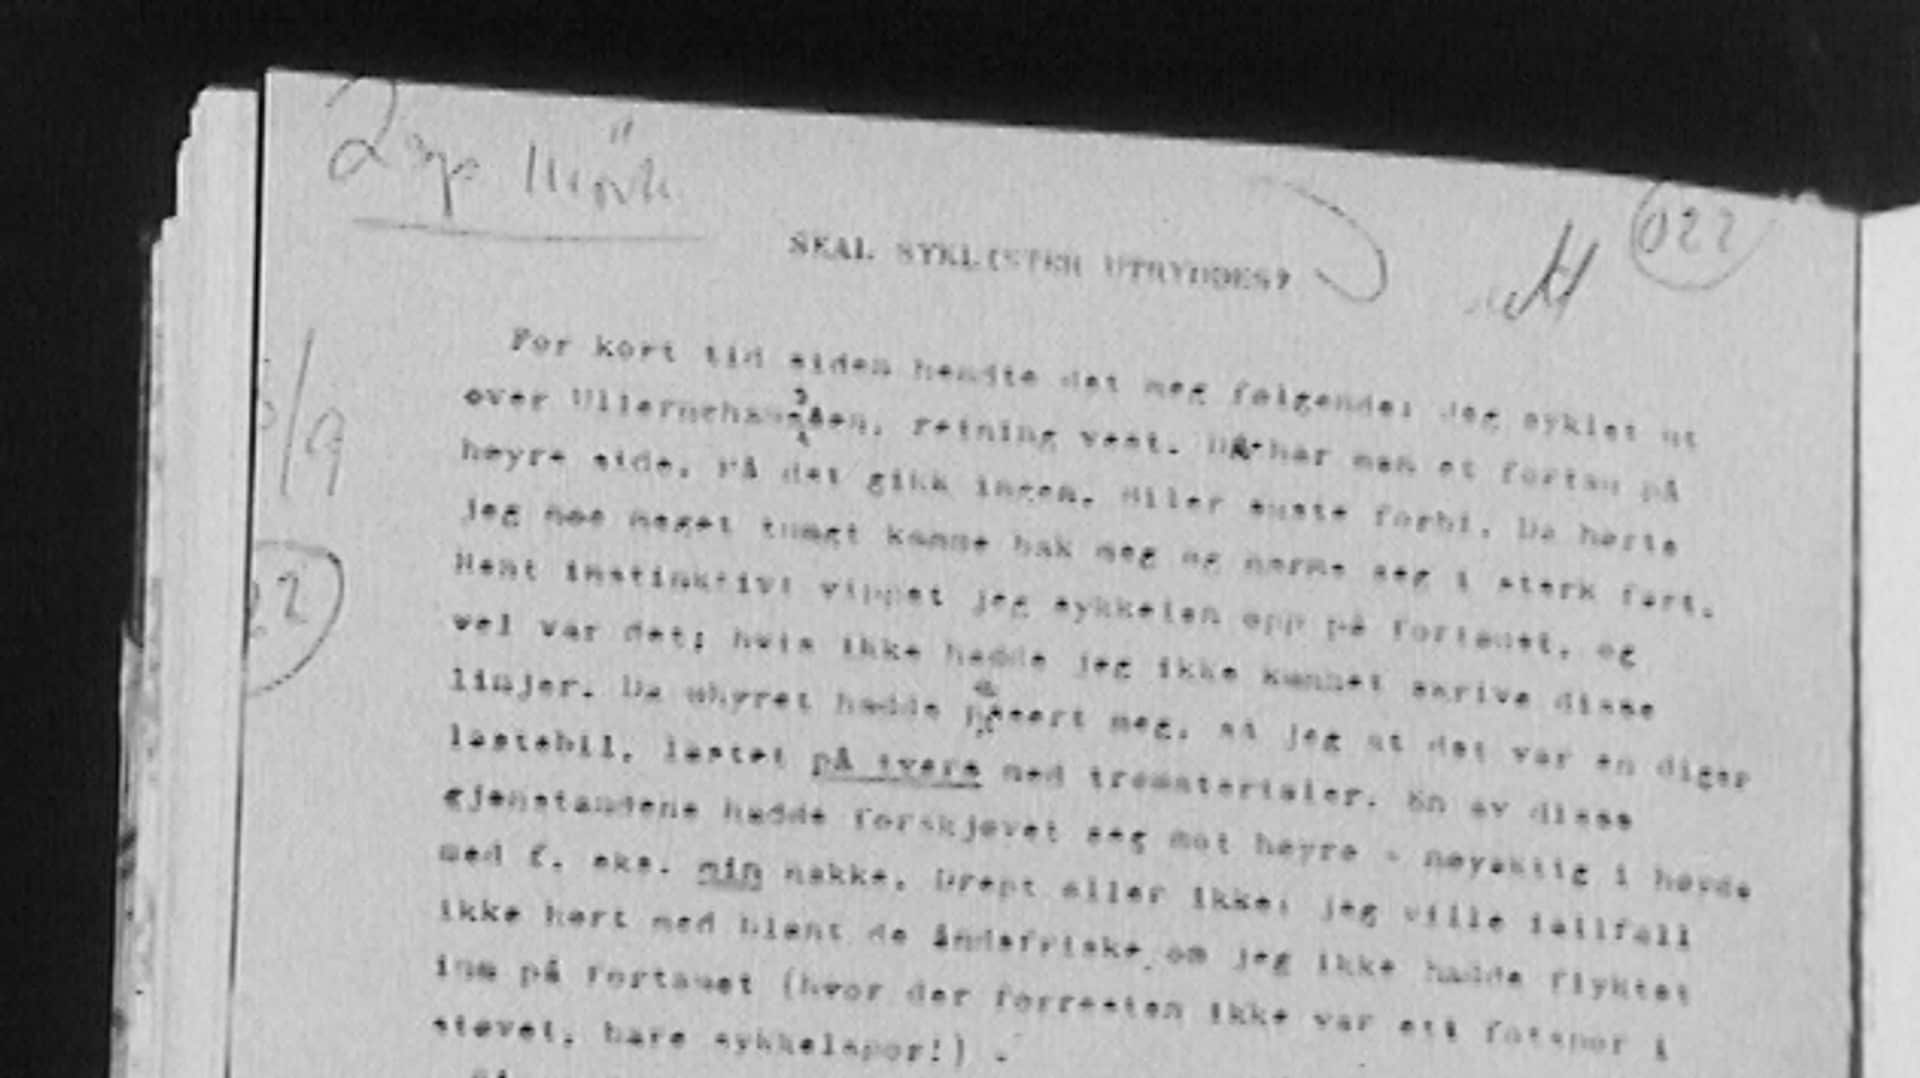 2 sp
022
SKAL SYKLISTER UTRYDDES?
For kort tid siden hendte det meg følgende: Jeg syklet ut
over Ullernchausséen, retning vest. Då har man et fortau på
høyre side. På det gikk ingen. Biler suste forbi. Da hørte
jeg noe meget tungt komme bak meg og nærme seg i sterk fart.
Rent instinktivt vippet jeg sykkelen opp på fortauet, og
vel var det; hvis ikke hadde jeg ikke kunnet skrive disse
linjer. Da uhyret hadde passert meg, så jeg at det var en diger
lastebil, lastet på tvers med trematerialer. En av disse
gjenstandene hadde forskjøvet seg mot høyre - nøyaktig i høyde
med f. eks. min nakke. Drept eller ikke: jeg ville iallfall
ikke hørt med blant de åndsfriske om jeg ikke hadde flyktet
inn på fortauet (hvor der forresten ikke var ett fotspor i
støvet, bare sykkelspor!) .
9
22